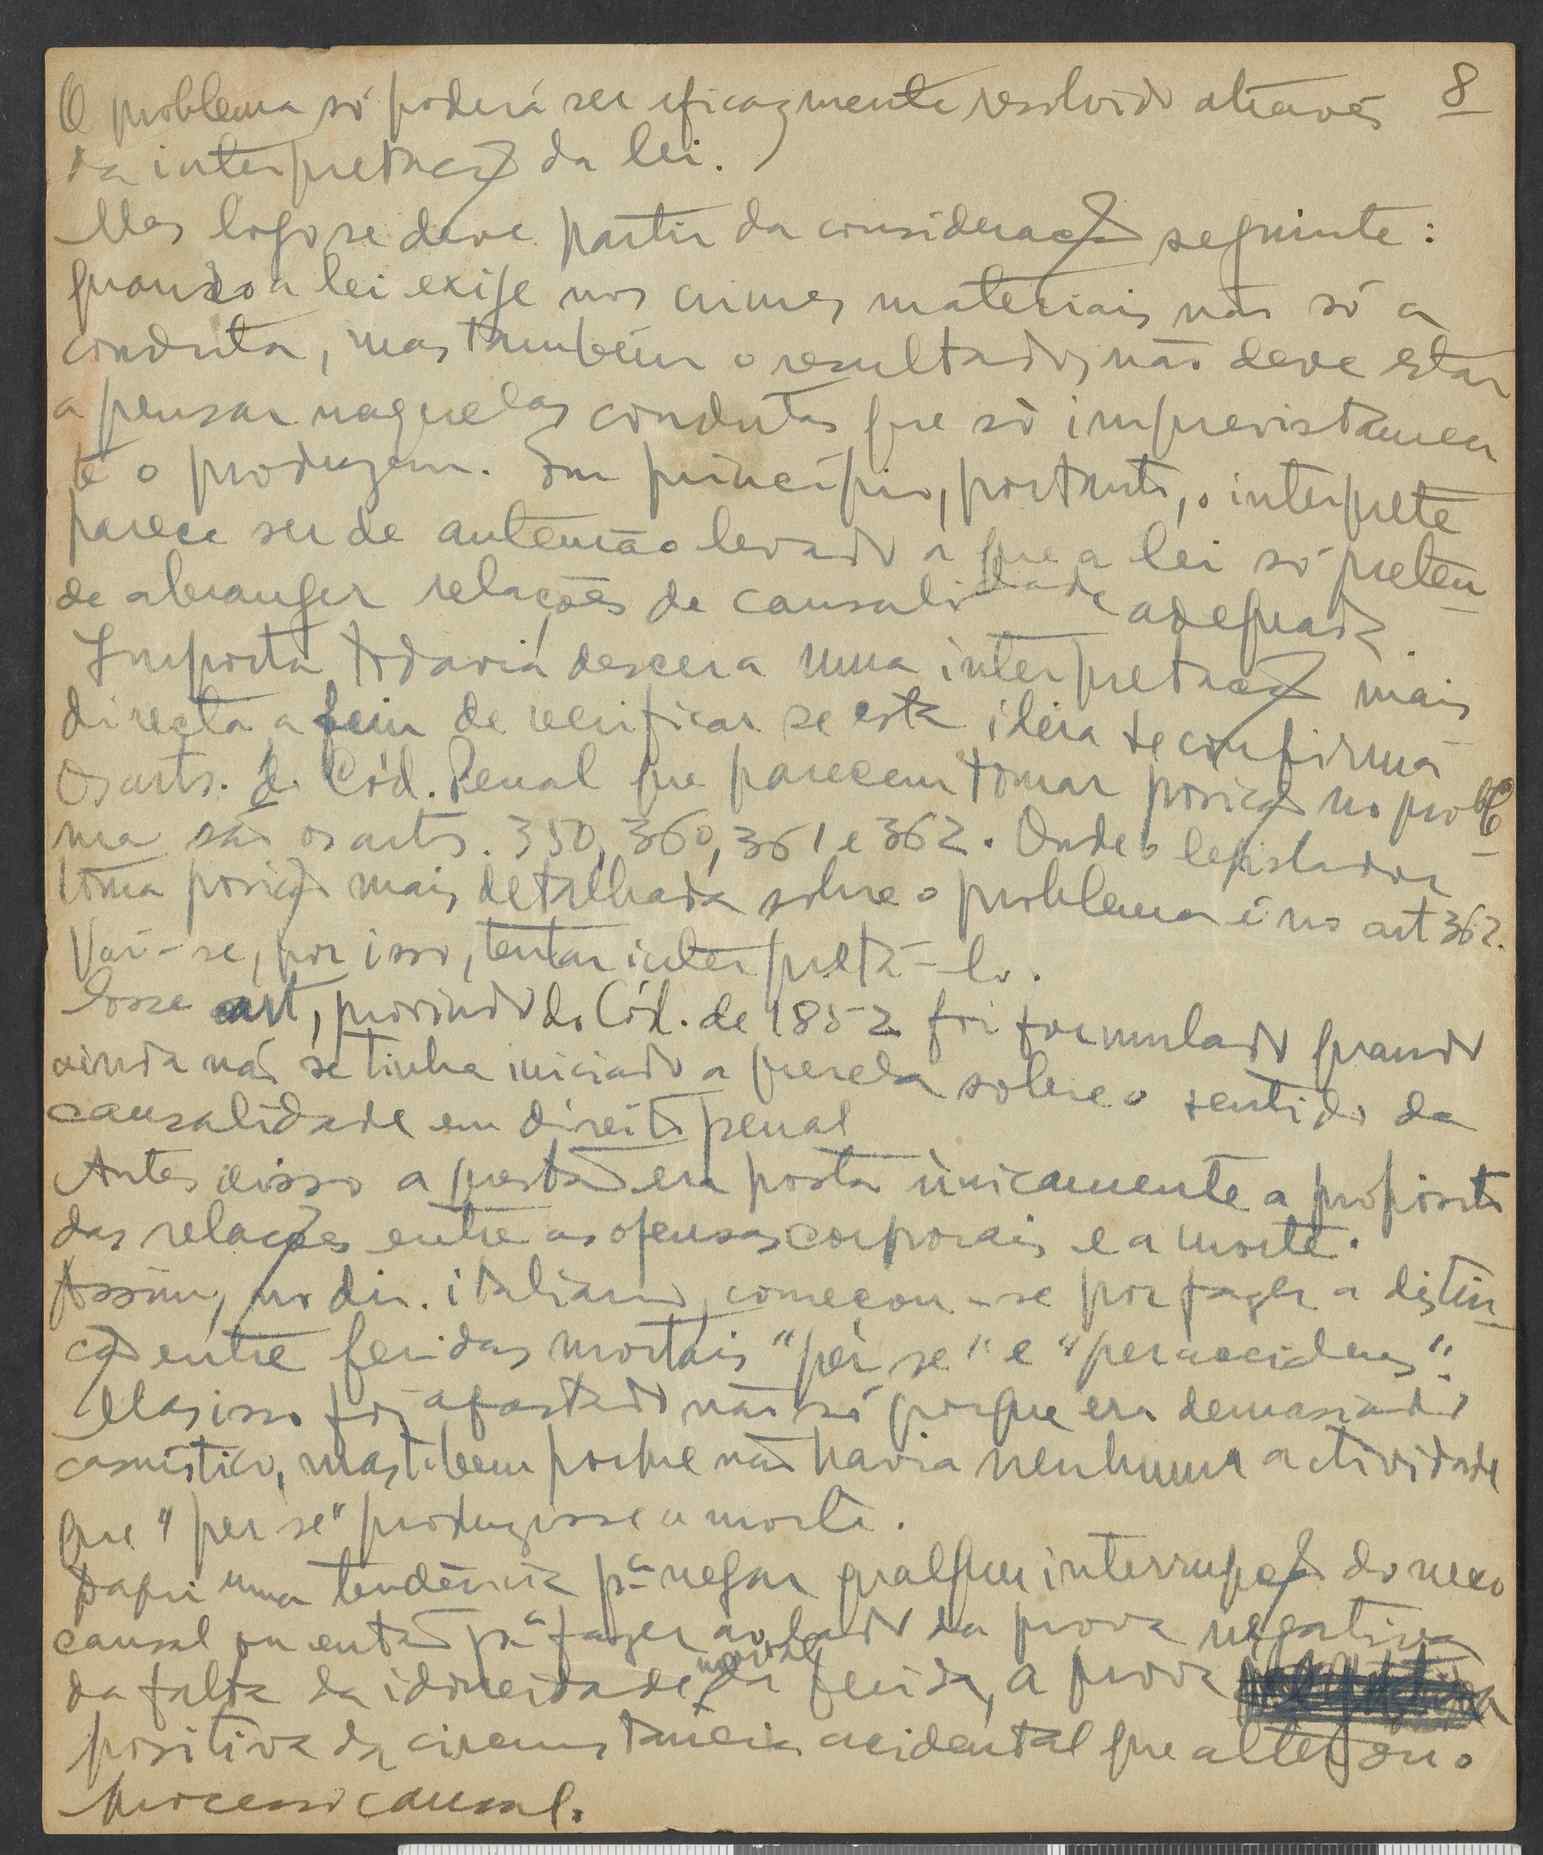 8
O problema só poderá ser eficazmente resolvido através
da interpretação da lei.
Mas logo se deve partir da consideração seguinte:
quando a lei exige nos crimes materiais não só a
conduta, mas também o resultado, não deve estar
a pensar naquelas condutas que só imprevistamen
te o produzem. Em princípio, portanto, o intérprete
parece ser de antemão levado a que a lei só preten-
de abranger relações de causalidade adequada.
Importa todavia descer a uma interpretação mais
directa a fim de verificar se esta ideia se confirma
Os arts. do Cód. Penal que parecem tomar posição no proble-
ma são os arts. 350, 360, 361 e 362. Onde o legislador
toma posição mais detalhada sobre o problema é no art 362.
Vai-se, por isso, tentar interpretá-lo.
Esse art, provindo do Cód. de 1852 foi formulado quando
ainda não se tinha iniciado a querela sobre o sentido da
causalidade em direito penal
Antes disso a questão era posta ùnicamente a propósito
das relações entre as ofensas corporais e a morte.
Assim, no dir. italiano, começou-se por fazer a distin-
ção entre feridas mortais "per se" e "per accidens".
Mas isso foi afastado não só porque era demasiado
casuístico, mas tbem porque não havia nenhuma actividade
que "per se" produzisse a morte.
Daqui uma tendência pª negar qualquer interrupção do nexo
causal ou então pª fazer ao lado da prova negativa
da falta da idoneidade normal da ferida, a prova
positiva da circunstância acidental que alterou o
processo causal.